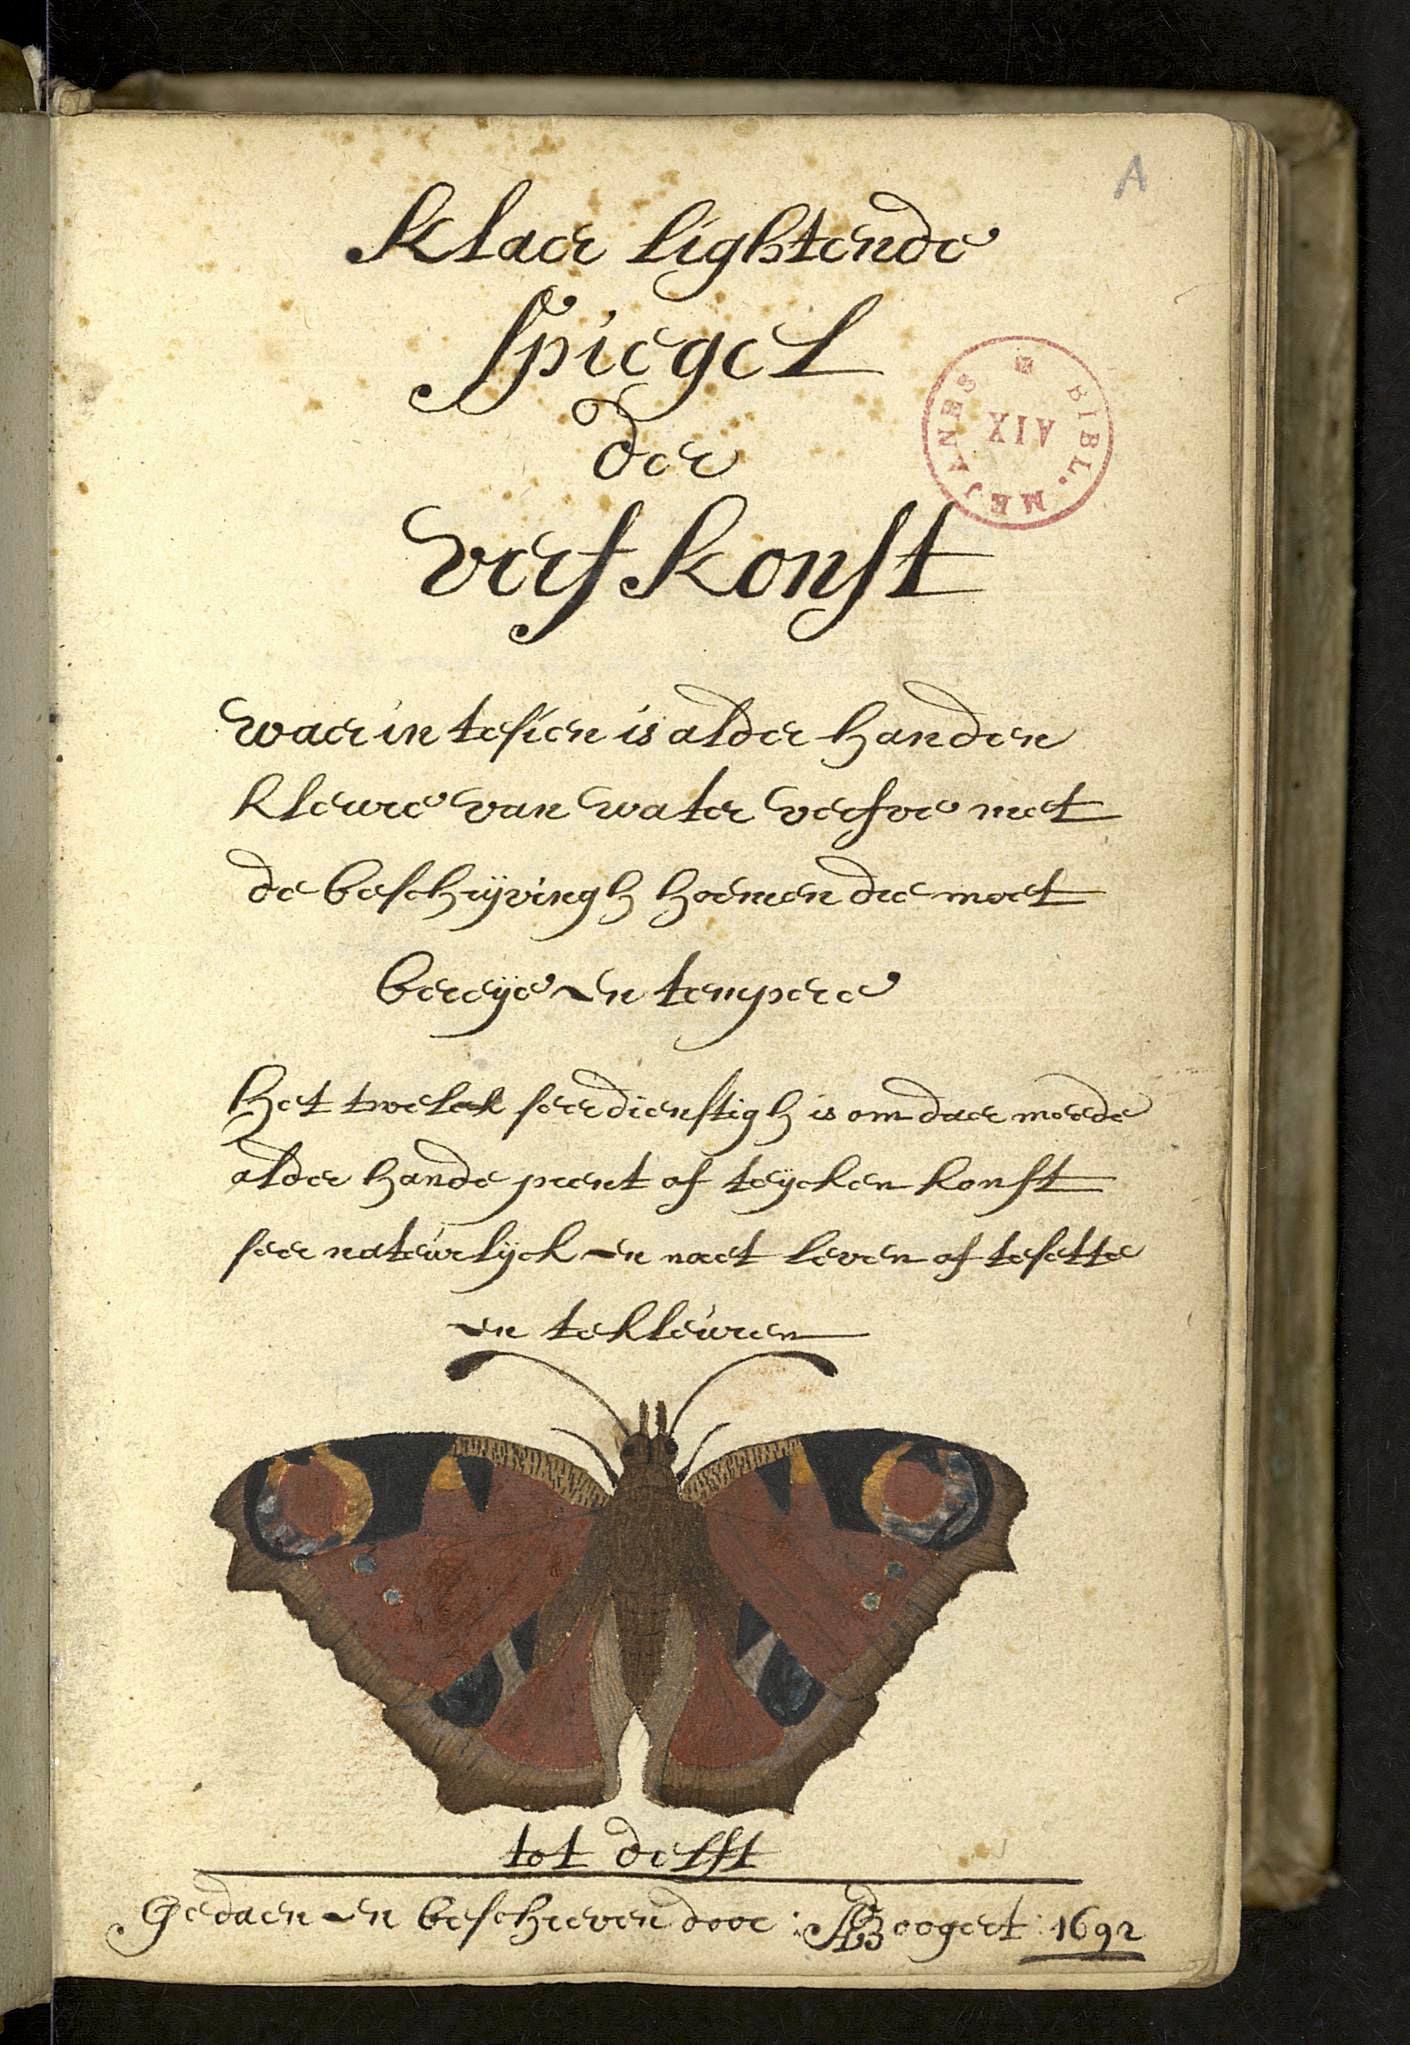 A
Klaer lightende
Spiegel
der
Verfkonst
BIBL. MEJANES
AIX
Waer in tesien is alder handen
kleure van water verfve met
de beschrijvingh hoemen die moet
bereÿe en tempere
Het twelck seer dienstigh is om daer meede
alder hande prent of teÿcken konst
seer natuerlÿck en naet leven of tesette
en tekleuren
tot delft
Gedaen en beschreven door : A Boogert : 1692